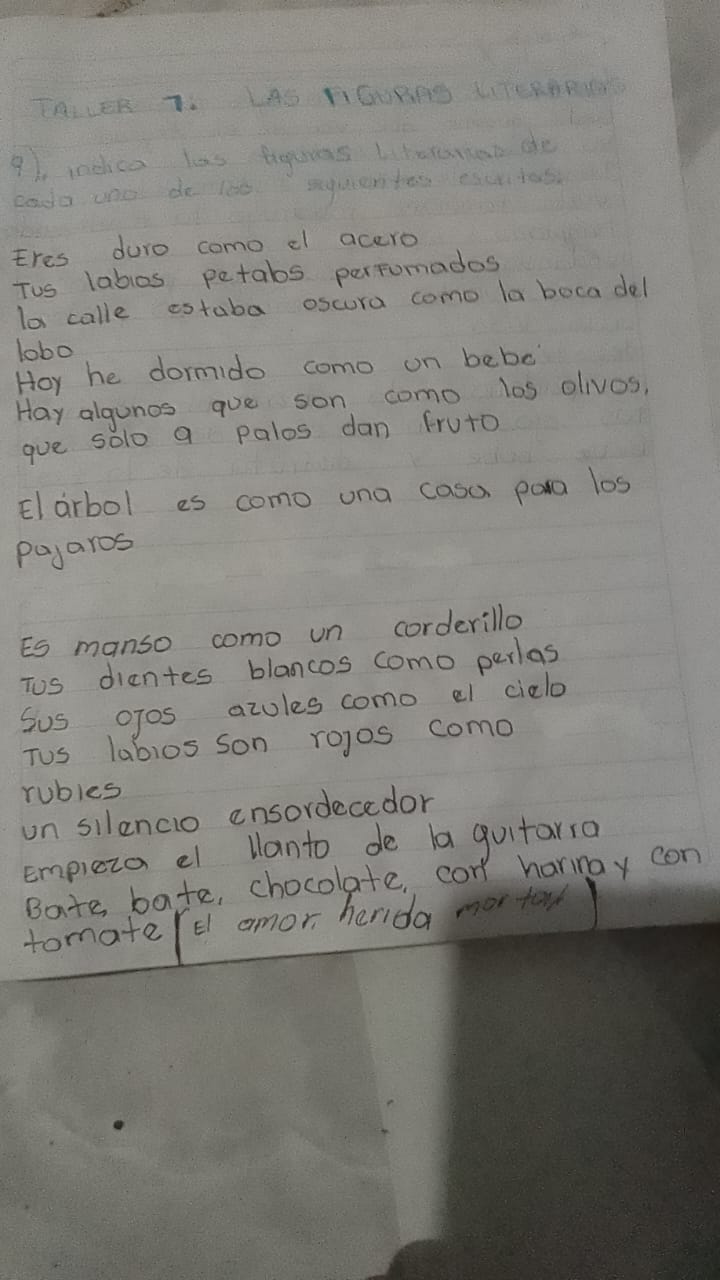 TALLER 7. LAS FIGURAS LITERARIAS
9). indica las figuras literarias de
cada uno de los siguientes escritos.
Eres duro como el acero
Tus labios petalos perfumados
la calle estaba oscura como la boca del
lobo
Hoy he dormido como un bebe
Hay algunos que son como los olivos,
que sólo a palos dan fruto
El árbol es como una casa para los
pajaros
Es manso como un corderillo
Tus dientes blancos como perlas
Sus ojos azules como el cielo
Tus labios son rojos como
rubies
un silencio ensordecedor
Empieza el llanto de la guitarra
Bate, bate, chocolate, con harina y con
tomate (El amor, herida mortal)